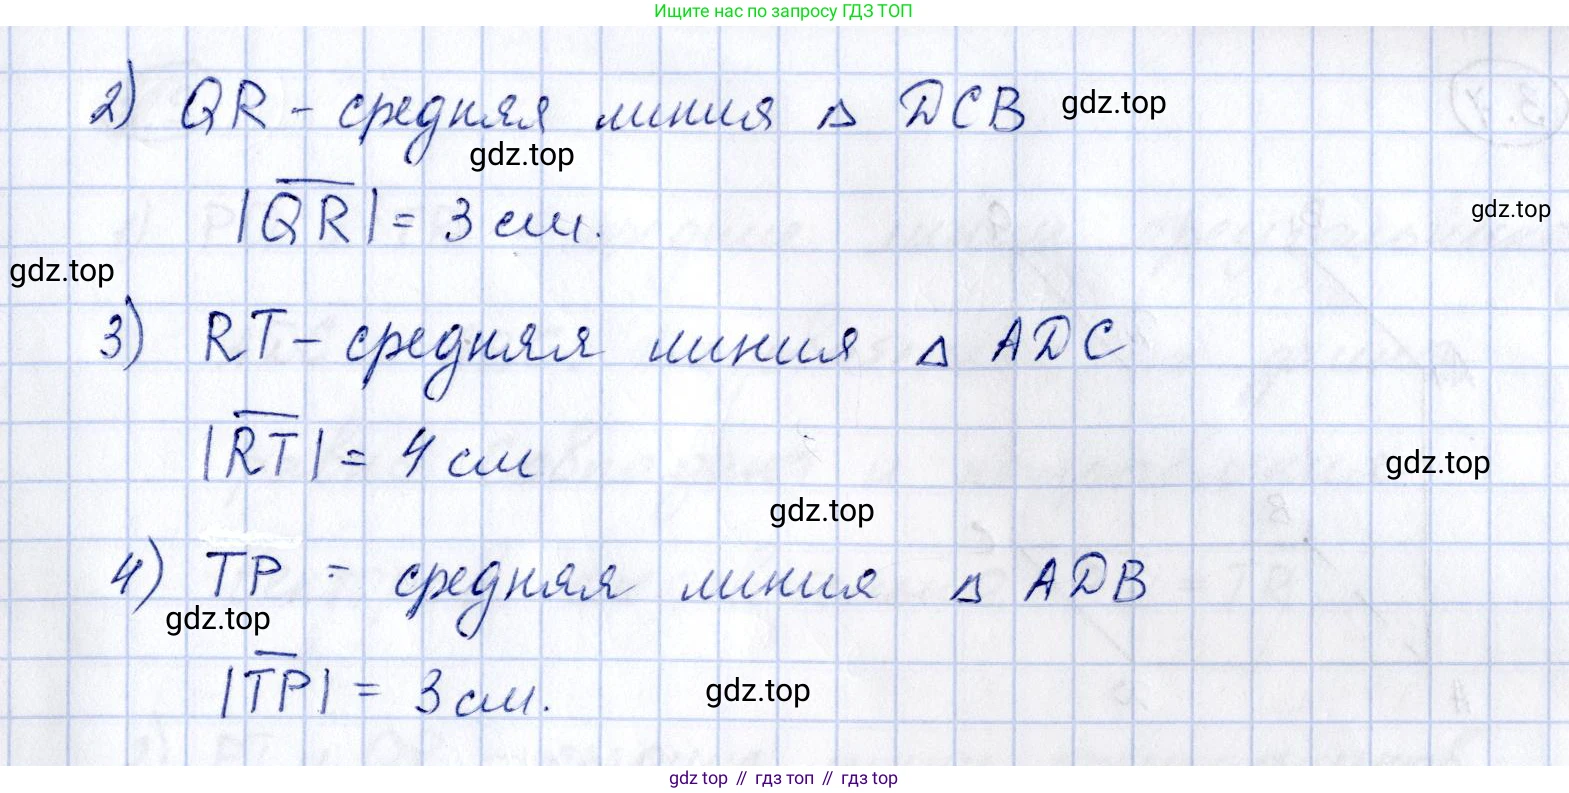 Ищите нас по запросу ГДЗ ТОП
2) QR - средняя линия △ DCB gdz.top
gdz.top
|QR| = 3 см.
gdz.top
gdz.top
3) RT - средняя линия △ ADC
|RT| = 4 см
gdz.top
gdz.top
4) TP - средняя линия △ ADB
gdz.top
|TP| = 3 см.
gdz.top
gdz top // гдз топ // гдз top